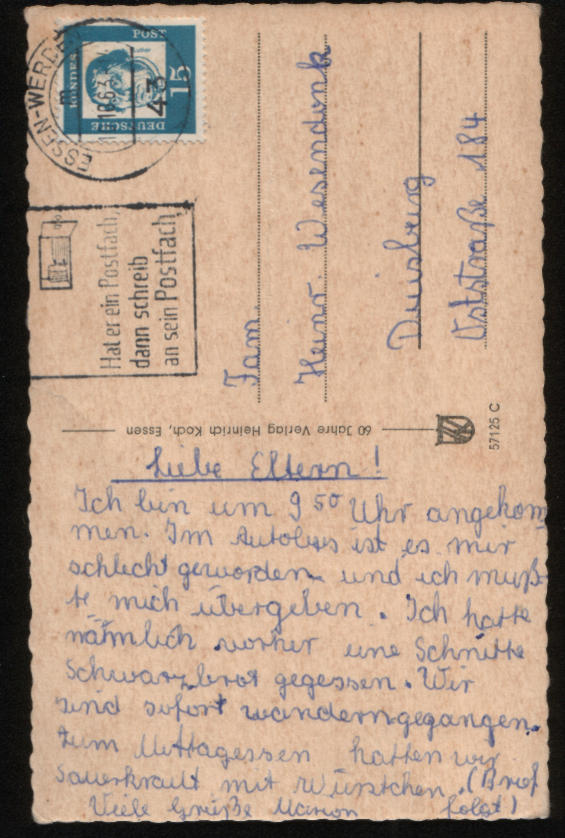 DEUTSCHE
BUNDES
POST
Luther
15
ESSEN-WERDEN
43
Hat er ein Postfach,
dann schreib
an sein Postfach
Fam.
Heinr. Wesendonk
Duisburg
Oststraße 184
60 Jahre Verlag Heinrich Koch, Essen
57125 C
Liebe Eltern!
Ich bin um 9 50 Uhr angekom
men. Im Autobus ist es mir
schlecht geworden und ich muß-
te mich übergeben. Ich hatte
nähmlich vorher eine Schnitte
Schwarzbrot gegessen. Wir
sind sofort wanderngegangen.
Zum Mittagessen hatten wir
Sauerkraut mit Würstchen. (Brief
folgt!)
Viele Grüße Marion